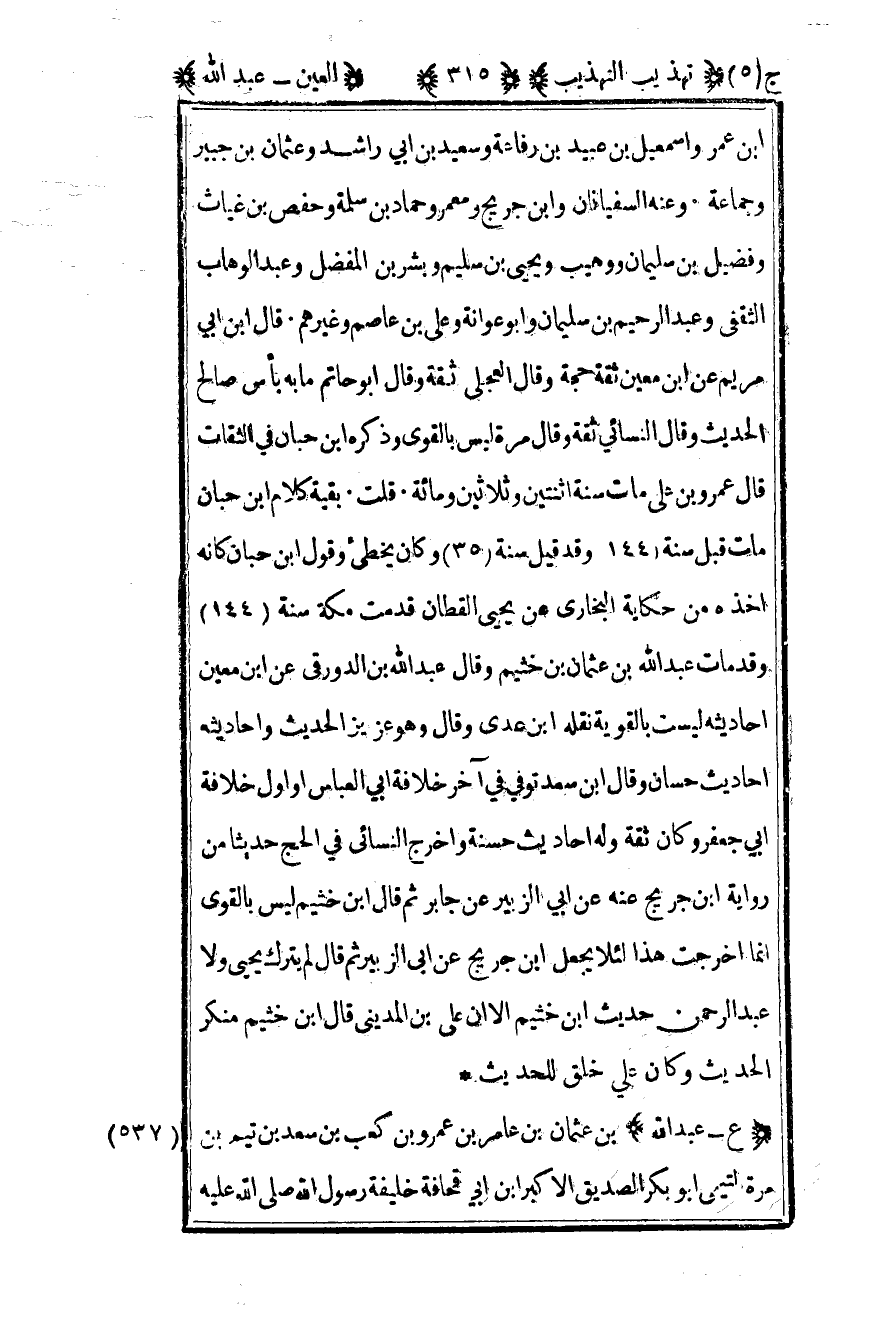 ج(٥) تهذيب التهذيب ٣١٥ العين ــ عبد الله
ابن عمر واسمعيل بن عبيد بن رفاعة وسعيد بن ابي راشــد وعثمان بن جبير
وجماعة ٠ وعنه السفيانان وابن جريج ومعمر وحماد بن سلمة وحفص بن غياث
وفضيل بن سليمان ووهيب ويحيى بن سليم وبشر بن المفضل وعبدالوهاب
الثقفى وعبدالرحيم بن سليمان وابو عوانة وعلى بن عاصم وغيرهم ٠ قال ابن ابي
مريم عن ابن معين ثقة حجة وقال العجلى ثـقة وقال ابو حاتم ما به بأس صالح
الحديث وقال النسائي ثقة وقال مرة ليس بالقوى وذكره ابن حبان في الثقات
قال عمرو بن على مات سنة اثنتين وثلاثين ومائة ٠ قلت ٠ بقية كلام ابن حبان
مات قبل سنة (١٤٤ وقد قيل سنة (٣٥) وكان يخطئ وقول ابن حبان كانه
اخذه من حكاية البخارى عن يحيى القطان قدمت مكة سنة (١٤٤)
وقد مات عبدالله بن عثمان بن خثيم وقال عبدالله بن الدورقى عن ابن معين
احاديثه ليست بالقوية نقله ابن عدى وقال وهو عزيز الحديث واحاديثه
احاديث حسان وقال ابن سعد توفي في آخر خلافة ابي العباس او اول خلافة
ابي جعفر وكان ثقة وله احاديث حسنة واخرج النسائى في الحج حديثا من
رواية ابن جريج عنه عن ابي الزبير عن جابر ثم قال ابن خثيم ليس بالقوى
انما اخرجت هذا لئلا يجعل ابن جريج عن ابى الزبير ثم قال لم يترك يحيى ولا
عبدالرحمن حديث ابن خثيم الا ان على بن المدينى قال ابن خثيم منكر
الحديث وكان علي خلق للحديث *
ع ــ عبدالله بن عثمان بن عامر بن عمرو بن كعب بن سعد بن تيم بن (٥٣٧)
مرة التيمى ابو بكر الصديق الاكبر ابن ابي قحافة خليفة رسول الله صلى الله عليه